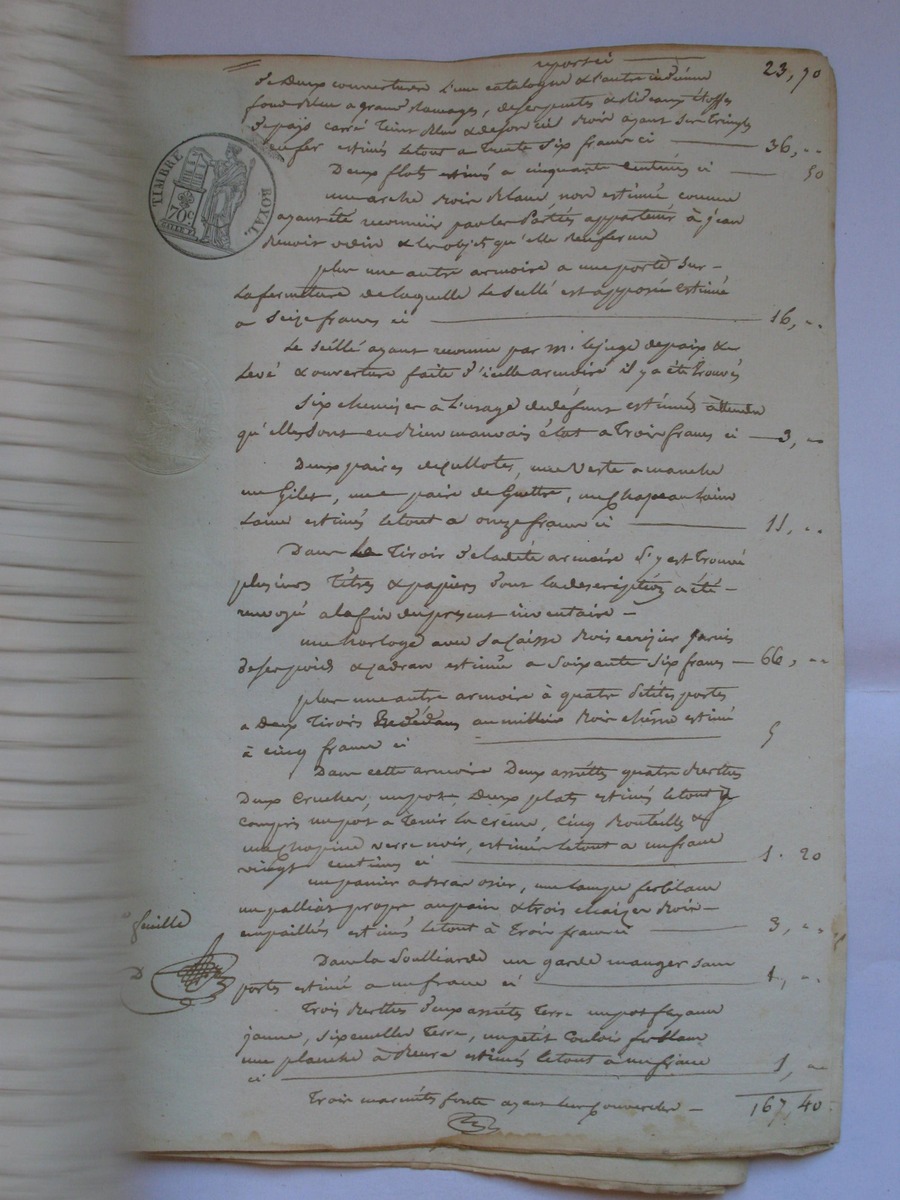 reporté 23,70
de Deux couvertures L'une catalogne & l'autre indienne
fond bleu a grand Ramages, de serpentes & rideaux étoffes
de pays carré teint bleu & de son ciel Bois ayant ses tringles
en fer estimés le tout a trente six francs ci 36, ..
Deux flots estimés a cinquante centimes ci 50
une arche Bois blanc, non estimée comme
ayant été reconnue par les Parties appartenir à jean
Benoit & les objets qu'elle renferme
plus une autre armoire a une porte sur
La fermeture de laquelle le scellé est apposé estimé
a seize francs ci 16, ..
Le scellé ayant reconnu par m. le juge de paix &
Levé & ouverture faite d'icelle armoire il y a été trouvés
Six chemises à L'usage du défunt estimés attendu
qu'elles sont en bien mauvais état a trois francs ci 3, ..
Deux paires de Culottes, une Veste a manche
un Gilet, une paire de Guettre, un Chapeau
Laine estimés le tout a onze francs ci 11, ..
Dans le Tiroir de ladite armoire s'y est trouvé
plusieurs Titres & papiers dont la description a été
renvoyé a la fin du present inventaire
une horloge avec sa Caisse Bois cerisier garnie
de ses poids & cadran estimée a soixante six francs 66, ..
plus une autre armoire à quatre petites portes
a Deux Tiroirs au milieu Bois chêne estimé
à cinq francs ci 5
Dans cette armoire Deux assiettes quatre
Deux Cruches, un pot, Deux plats estimés le tout y
Compris un pot a tenir la crème, Cinq Bouteilles &
une chopine verre noir, estimés le tout a un franc
vingt centimes ci 1. 20
un panier a bras osier, une lampe ferblanc
un palliat propre au pain & trois chaises Bois
empaillés estimés le tout à trois francs ci 3, ..
feuille
Dans la Souilliarde un garde manger sans
portes estimé a un franc ci 1, ..
Trois deux assiettes Terre un pot fayance
jaune, six écuelles Terre, un petit Couloir ferblanc
une planche à Beure estimés le tout a un franc
ci 1, ..
Trois marmites fonte ayant leur couvercles
167 40
TIMBRE ROYAL
70 c.